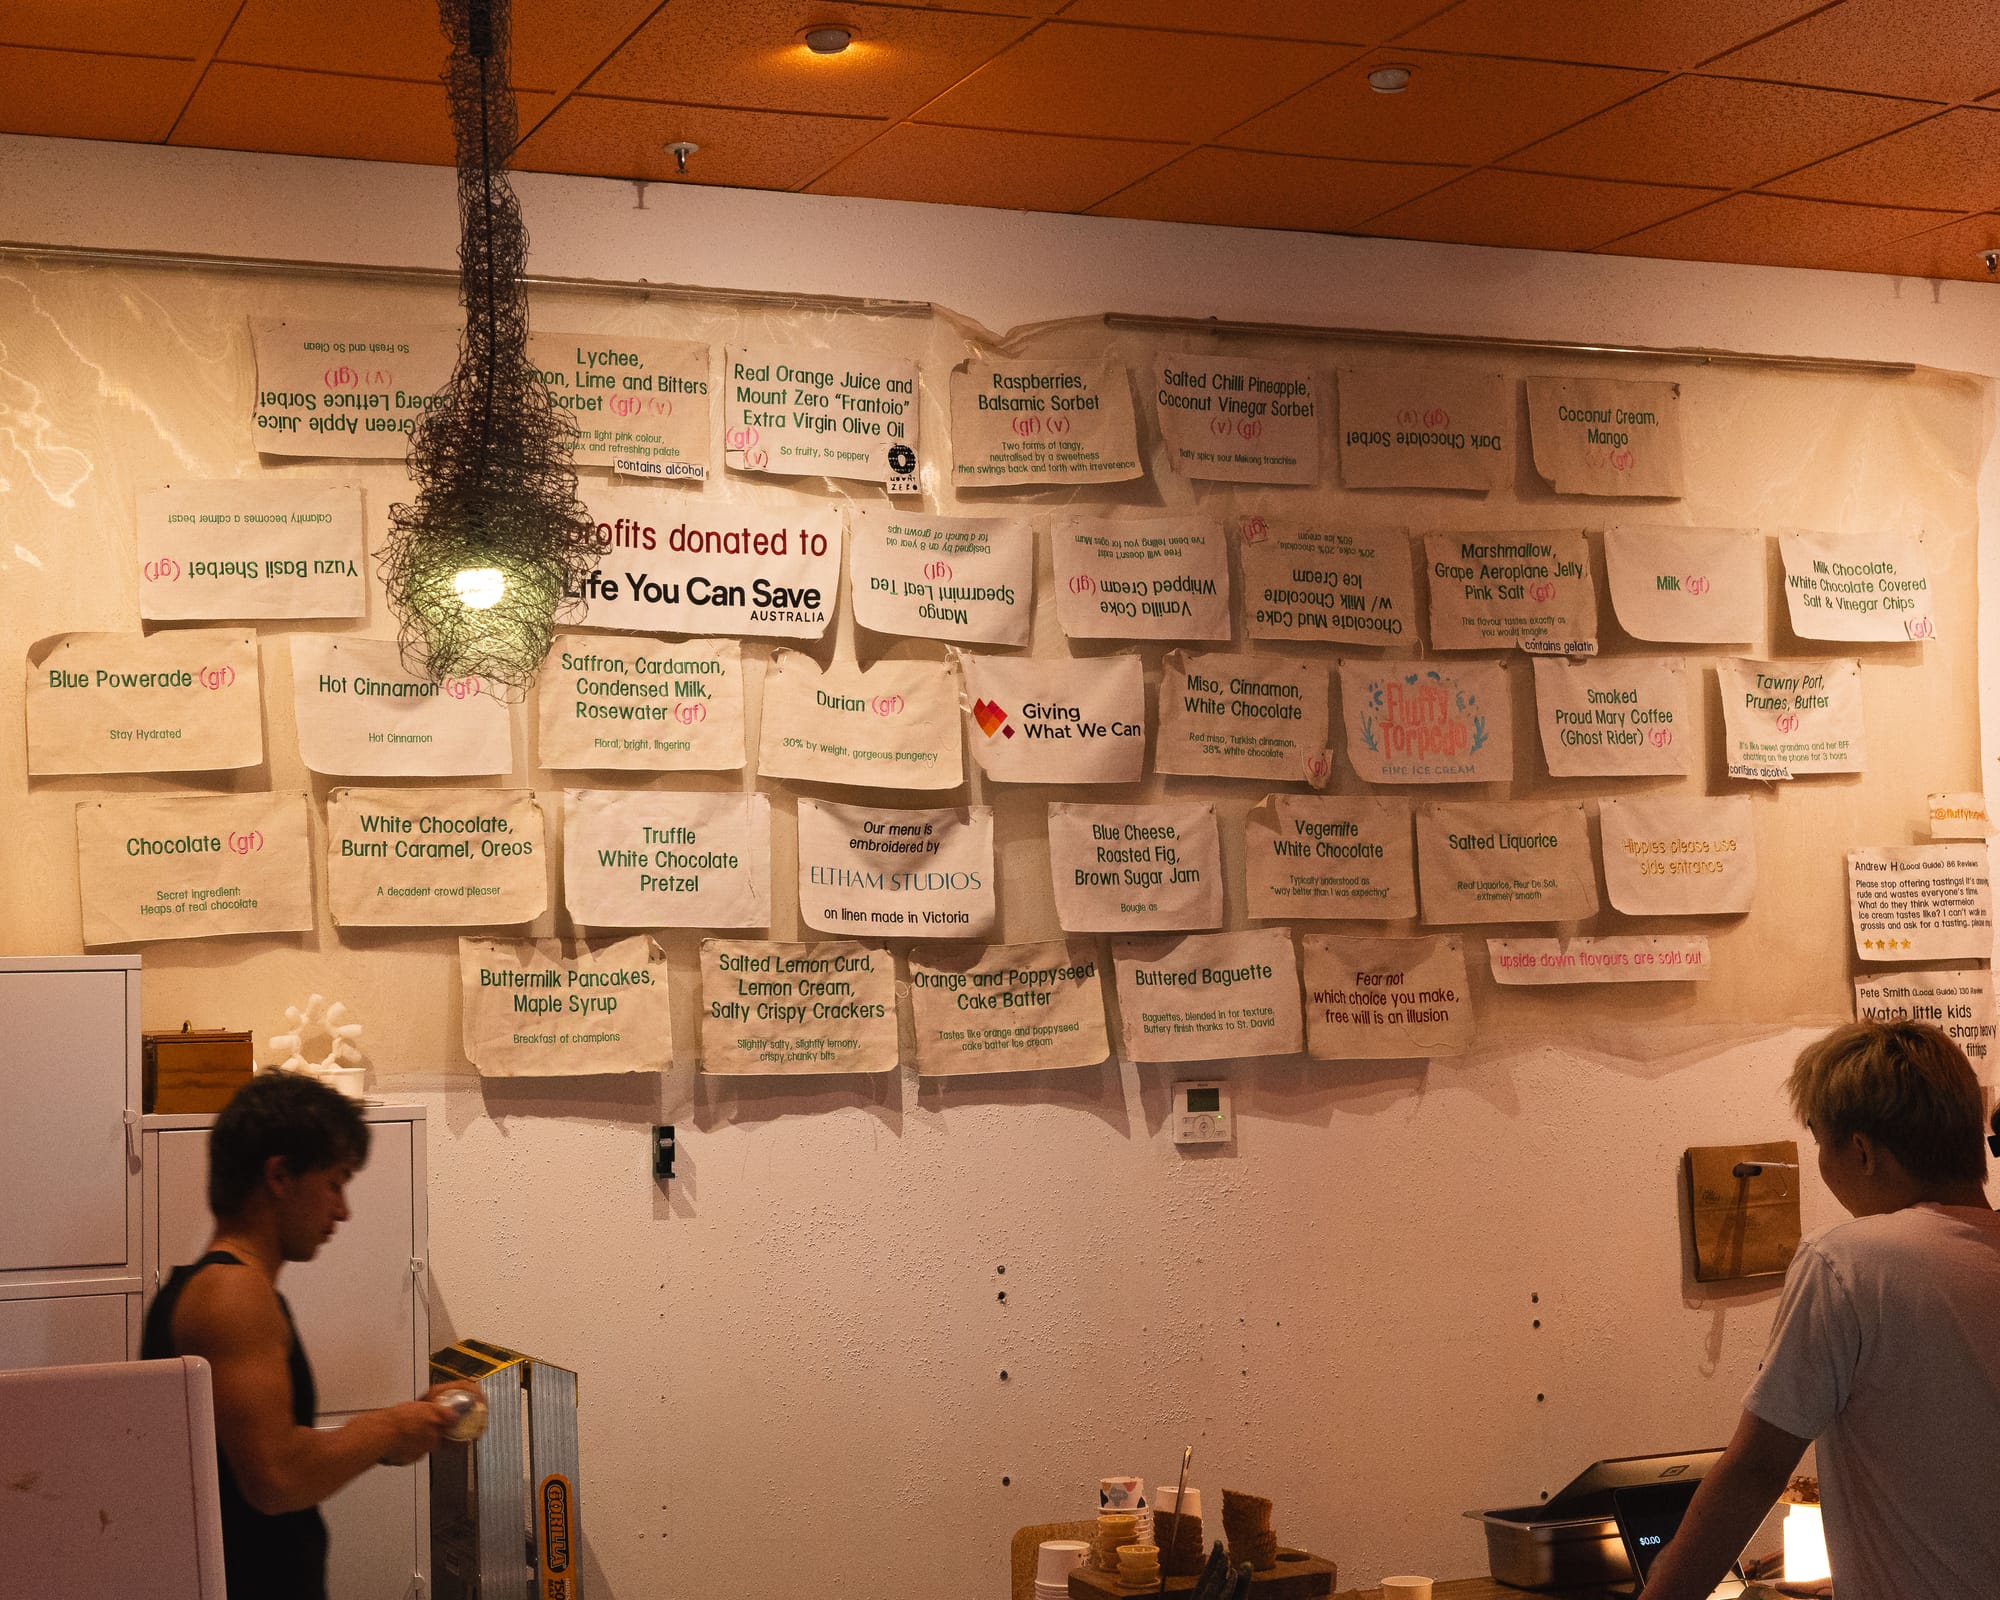 So Fresh and So Clean
(gf) (v)
Green Apple Juice,
Lettuce Sorbet
Lychee,
Lime and Bitters
Sorbet (gf) (v)
light pink colour,
and refreshing palate
contains alcohol
Real Orange Juice and
Mount Zero "Frantoio"
Extra Virgin Olive Oil
(gf)
(v)
So fruity, So peppery
MOUNT
ZERO
Raspberries,
Balsamic Sorbet
(gf) (v)
Two forms of tangy,
neutralised by a sweetness
then swings back and forth with irreverence
Salted Chilli Pineapple,
Coconut Vinegar Sorbet
(v) (gf)
spicy sour Mekong franchise
Dark Chocolate Sorbet
(gf) (v)
Coconut Cream,
Mango
(gf)
Yuzu Basil Sherbet (gf)
Calamity becomes a calmer beast
profits donated to
Life You Can Save
AUSTRALIA
Mango
Spearmint Leaf Tea
(gf)
Designed by an 8 year old
for a bunch of grown ups
Vanilla Coke
Whipped Cream (gf)
Free will doesn't exist
I've been telling you for ages Mum
Chocolate Mud Cake
w/ Milk Chocolate
Ice Cream
20% cake, 20% chocolate,
60% ice cream
(gf)
Marshmallow,
Grape Aeroplane Jelly,
Pink Salt (gf)
This flavour tastes exactly as
you would imagine
contains gelatin
Milk (gf)
Milk Chocolate,
White Chocolate Covered
Salt & Vinegar Chips
(gf)
Blue Powerade (gf)
Stay Hydrated
Hot Cinnamon (gf)
Hot Cinnamon
Saffron, Cardamon,
Condensed Milk,
Rosewater (gf)
Floral, bright, lingering
Durian (gf)
30% by weight, gorgeous pungency
Giving
What We Can
Miso, Cinnamon,
White Chocolate
Red miso, Turkish cinnamon,
38% white chocolate
(gf)
Fluffy
Torpedo
FINE ICE CREAM
Smoked
Proud Mary Coffee
(Ghost Rider) (gf)
Tawny Port,
Prunes, Butter
(gf)
It's like sweet grandma and her BFF
chatting on the phone for 3 hours
contains alcohol
Chocolate (gf)
Secret ingredient:
Heaps of real chocolate
White Chocolate,
Burnt Caramel, Oreos
A decadent crowd pleaser
Truffle
White Chocolate
Pretzel
Our menu is
embroidered by
ELTHAM STUDIOS
on linen made in Victoria
Blue Cheese,
Roasted Fig,
Brown Sugar Jam
Bougie as
Vegemite
White Chocolate
Typically understood as
"way better than I was expecting"
Salted Liquorice
Real Liquorice, Fleur De Sel,
extremely smooth
Hippies please use
side entrance
Buttermilk Pancakes,
Maple Syrup
Breakfast of champions
Salted Lemon Curd,
Lemon Cream,
Salty Crispy Crackers
Slightly salty, slightly lemony,
crispy chunky bits
Orange and Poppyseed
Cake Batter
Tastes like orange and poppyseed
cake batter ice cream
Buttered Baguette
Baguettes, blended in for texture.
Buttery finish thanks to St. David
Fear not
which choice you make,
free will is an illusion
upside down flavours are sold out
Andrew H (Local Guide) 86 Reviews
Please stop offering tastings! It's
rude and wastes everyone's time.
What do they think watermelon
ice cream tastes like? I can't walk
grossis and ask for a tasting..
Pete Smith (Local Guide) 130
Watch little kids
sharp heavy
fittings
GORILLA
$0.00